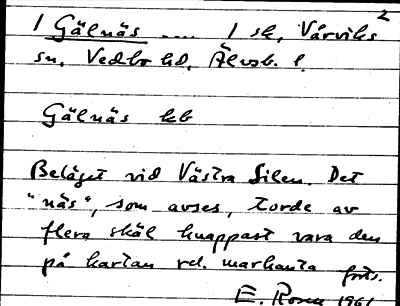 2
1 Gälnäs .... 1 sk, Vårviks
sn, Vedbo hd, Älvsb. l.
Gälnäs kb
Beläget vid Västra Silen. Det
"näs", som avses, torde av
flera skäl knappast vara den
på kartan rel. markanta forts.
E. Rosen 1961